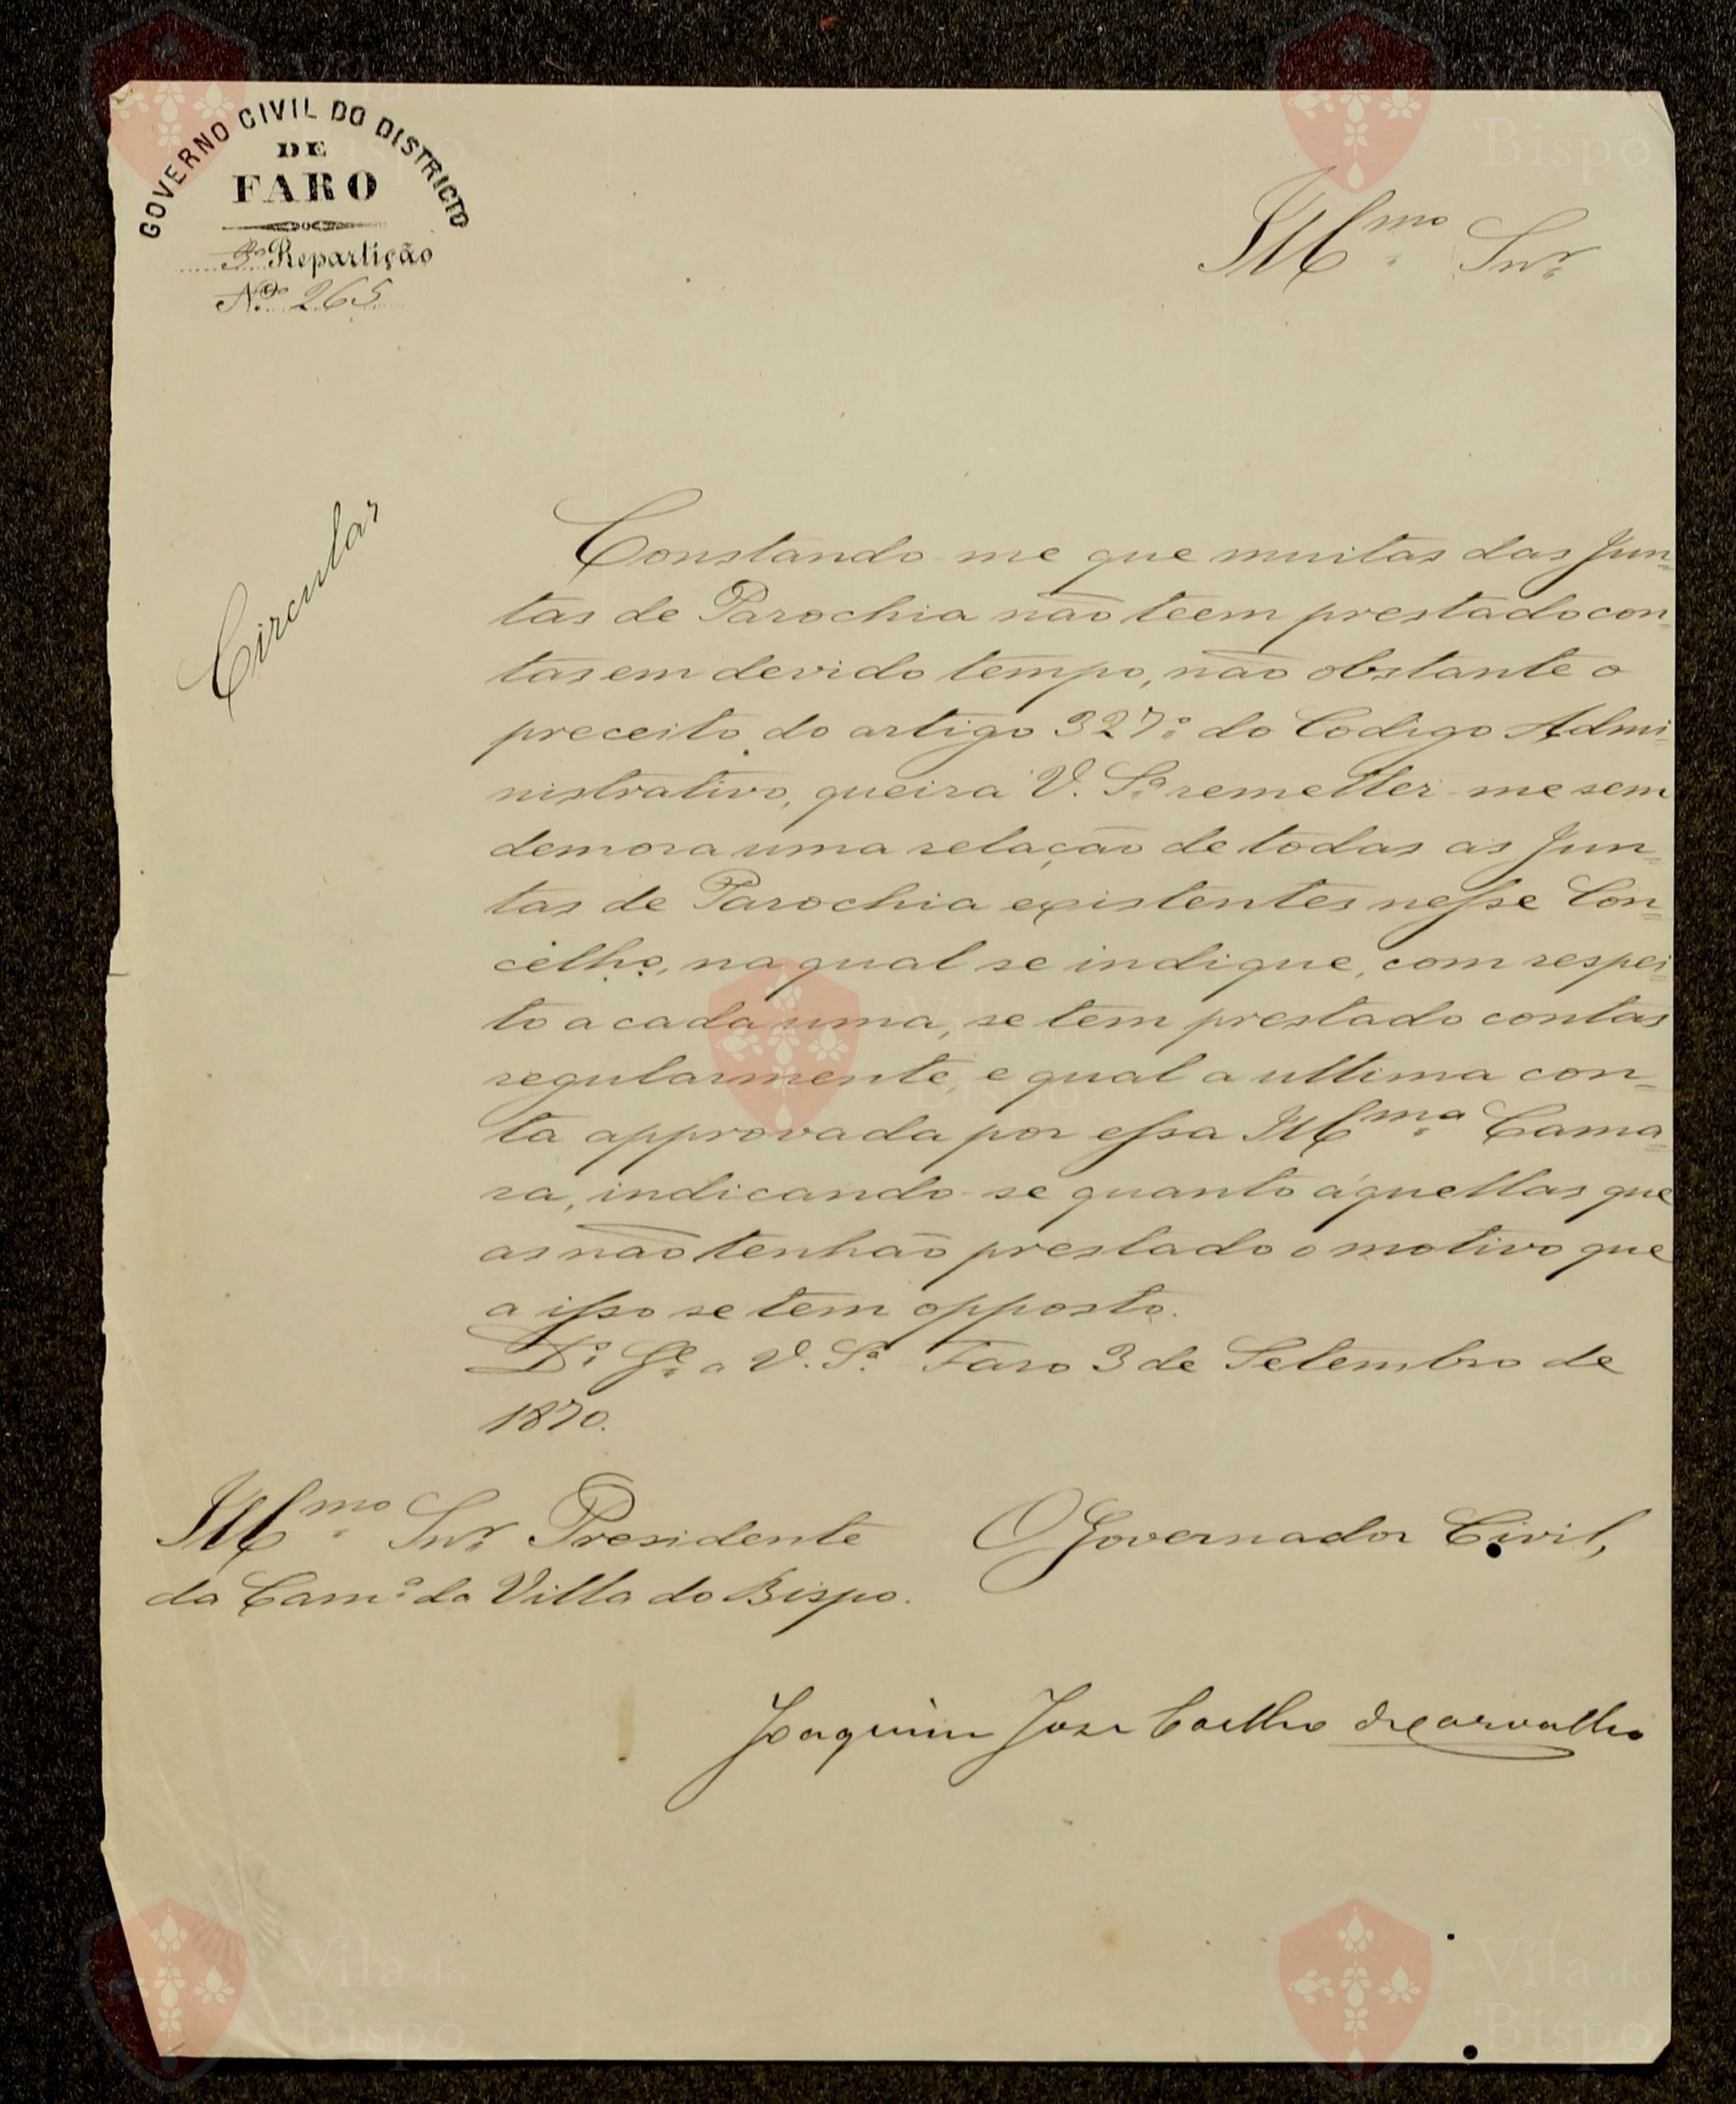 GOVERNO CIVIL DO DISTRICTO
DE
FARO
3ª Repartição
Nº 265
Illmo Snr.
Circular
Constando-me que muitas das Jun=
tas de Parochia não teem prestado con=
tas em devido tempo, não obstante o
preceito do artigo 327º do Codigo Admi=
nistrativo, queira V. Sª remetter-me sem
demora uma relação de todas as Jun=
tas de Parochia existentes nesse Con=
celho, na qual se indique, com respei=
to a cada uma, se tem prestado contas
regularmente, e qual a ultima con=
ta approvada por essa Illma Cama=
ra, indicando-se quanto áquellas que
as não tenhão prestado o motivo que
a isso se tem opposto.
Ds. Ge. a V. Sª Faro 3 de Setembro de
1870.
Illmo Snr. Presidente
da Camª da Villa do Bispo.
O Governador Civil,
Joaquim José Coelho de Carvalho
Vila do
Bispo